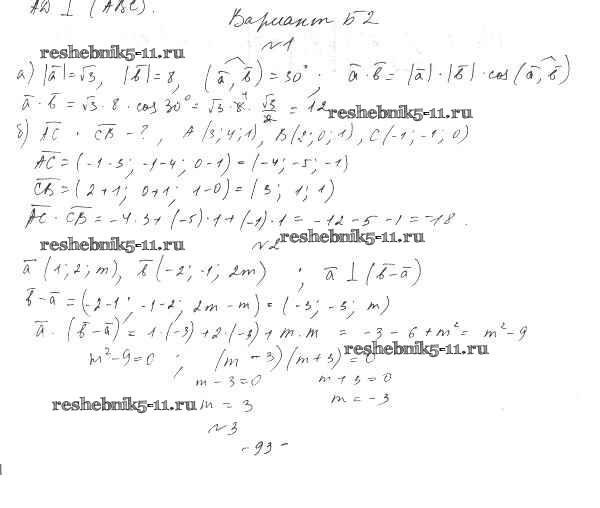 AD ⊥ (ABC).
Вариант Б2
№1
reshebnik5-11.ru
а) |a̅|=√3, |b̅|=8, (a̅, b̅)=30°; a̅·b̅=|a̅|·|b̅|·cos(a̅, b̅)
a̅·b̅=√3·8·cos30°=√3·8⁴·√3/2=12
reshebnik5-11.ru
б) A̅C̅ · C̅B̅ - ?, A(3;4;1), B(2;0;1), C(-1;-1;0)
A̅C̅=(-1-3; -1-4; 0-1)=(-4;-5;-1)
C̅B̅=(2+1; 0+1; 1-0)=(3; 1; 1)
A̅C̅·C̅B̅=-4·3+(-5)·1+(-1)·1=-12-5-1=-18.
reshebnik5-11.ru
№2
reshebnik5-11.ru
a̅(1;2;m), b̅(-2;-1;2m); a̅⊥(b̅-a̅)
b̅-a̅=(-2-1; -1-2; 2m-m)=(-3;-3;m)
a̅·(b̅-a̅)=1·(-3)+2·(-3)+m·m=-3-6+m²=m²-9
reshebnik5-11.ru
m²-9=0; (m-3)(m+3)=0
m-3=0 m+3=0
reshebnik5-11.ru
m=3 m=-3
№3
-93-